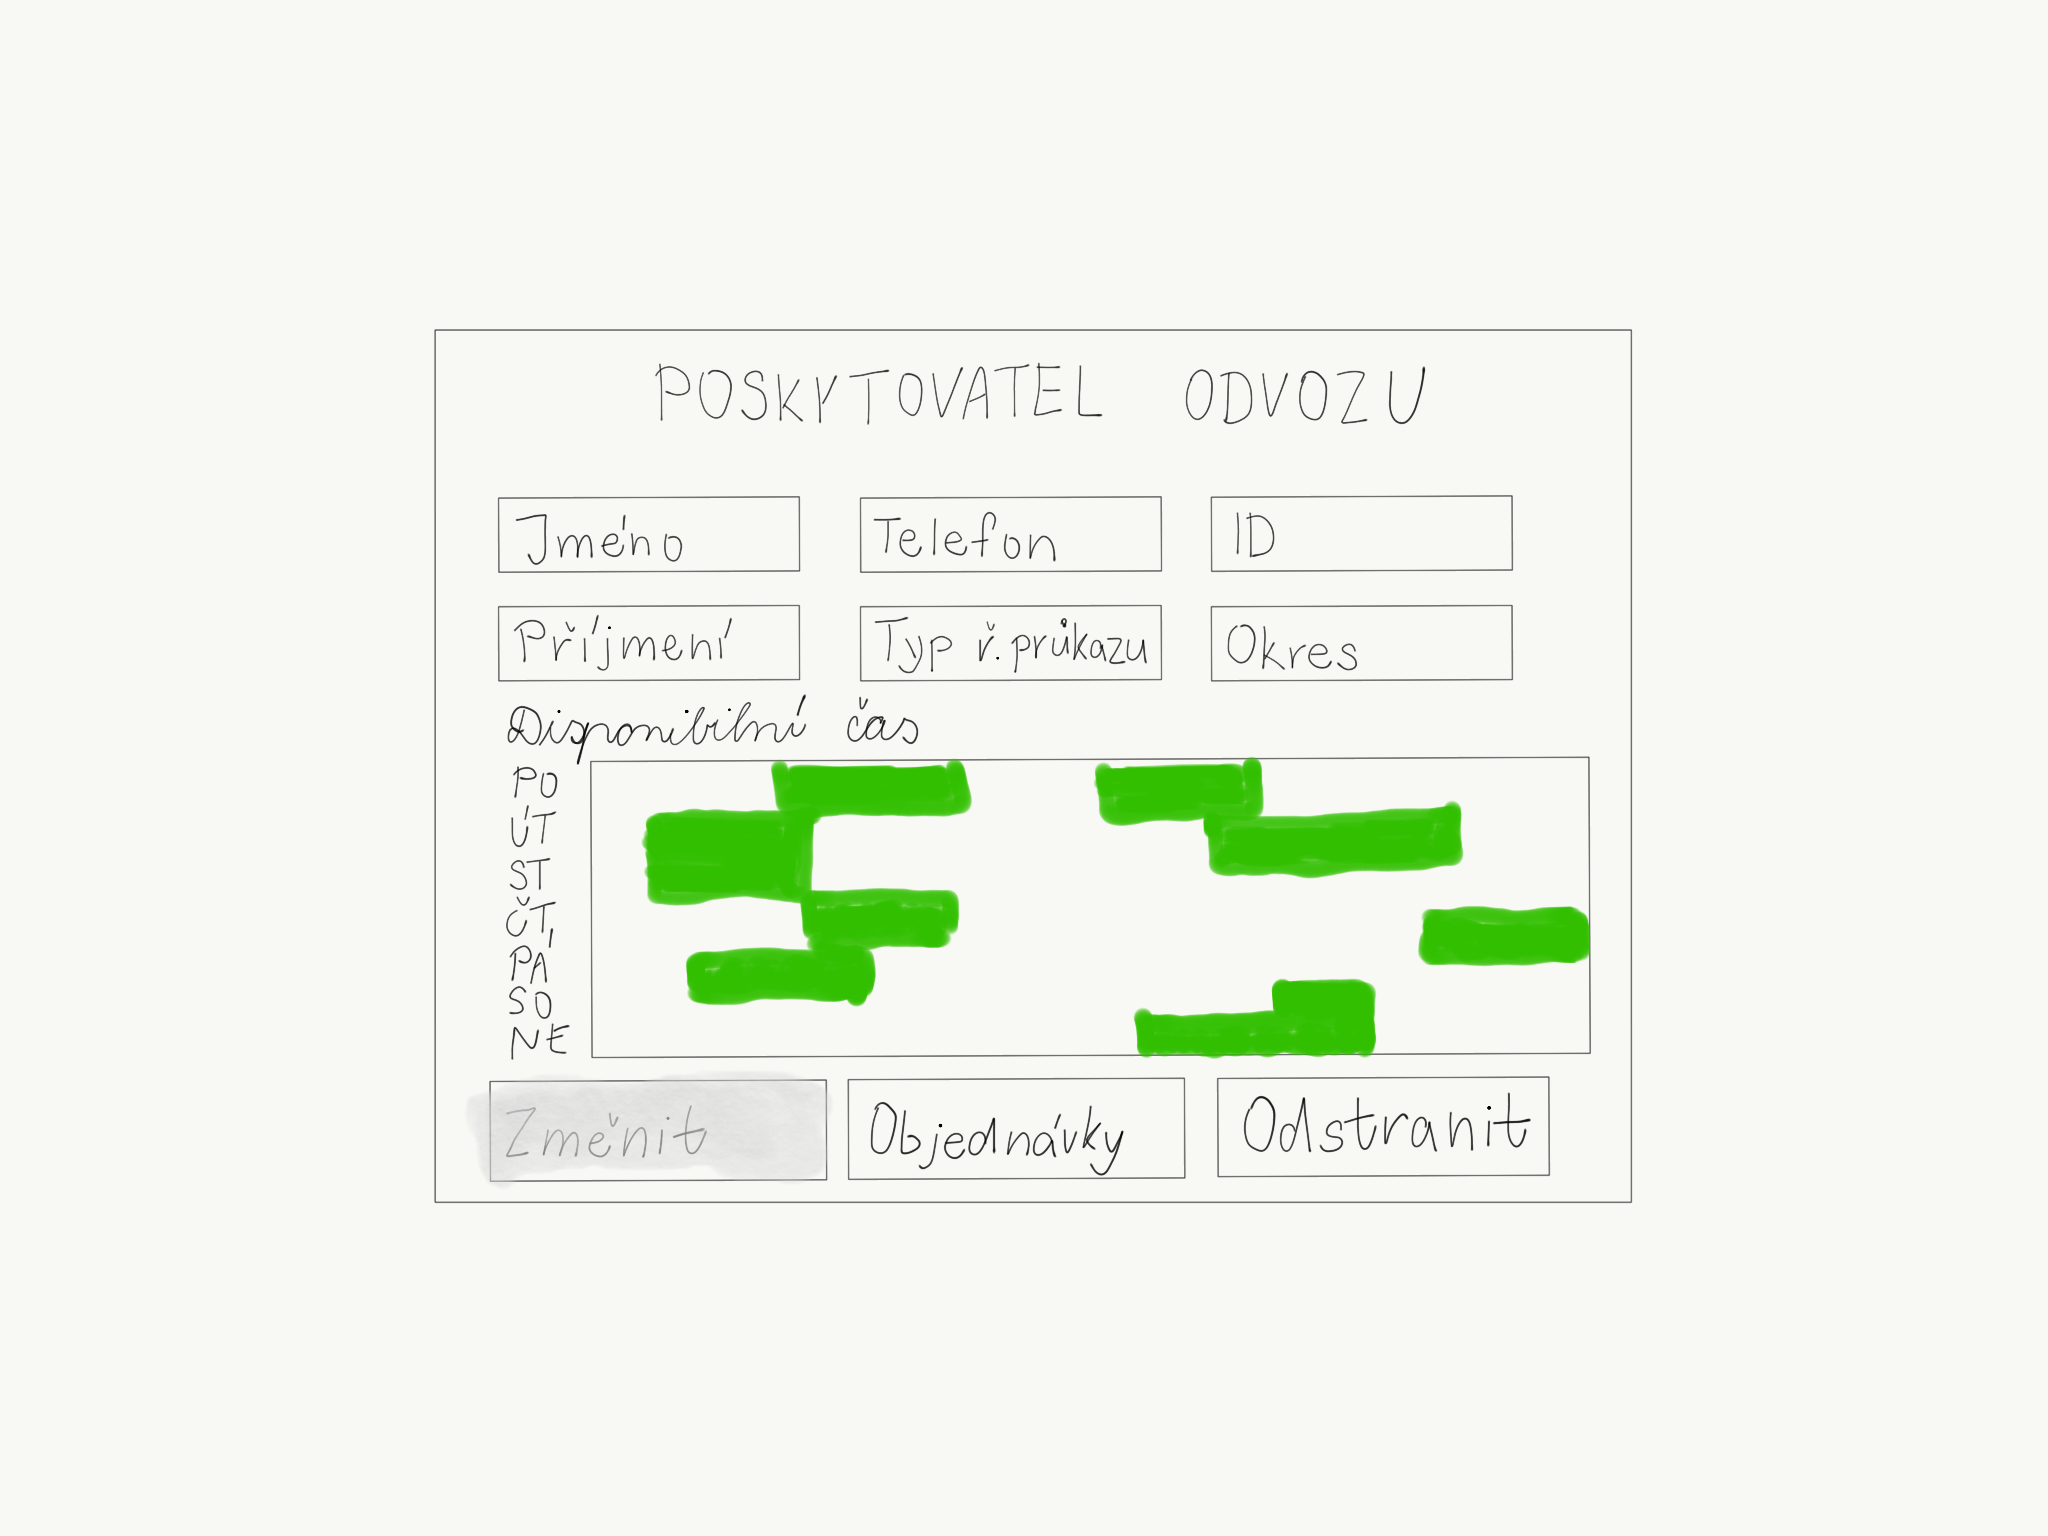 POSKYTOVATEL ODVOZU
Jméno Telefon ID
Příjmení Typ ř. průkazu Okres
Disponibilní čas
PO
ÚT
ST
ČT
PÁ
SO
NE
Změnit Objednávky Odstranit